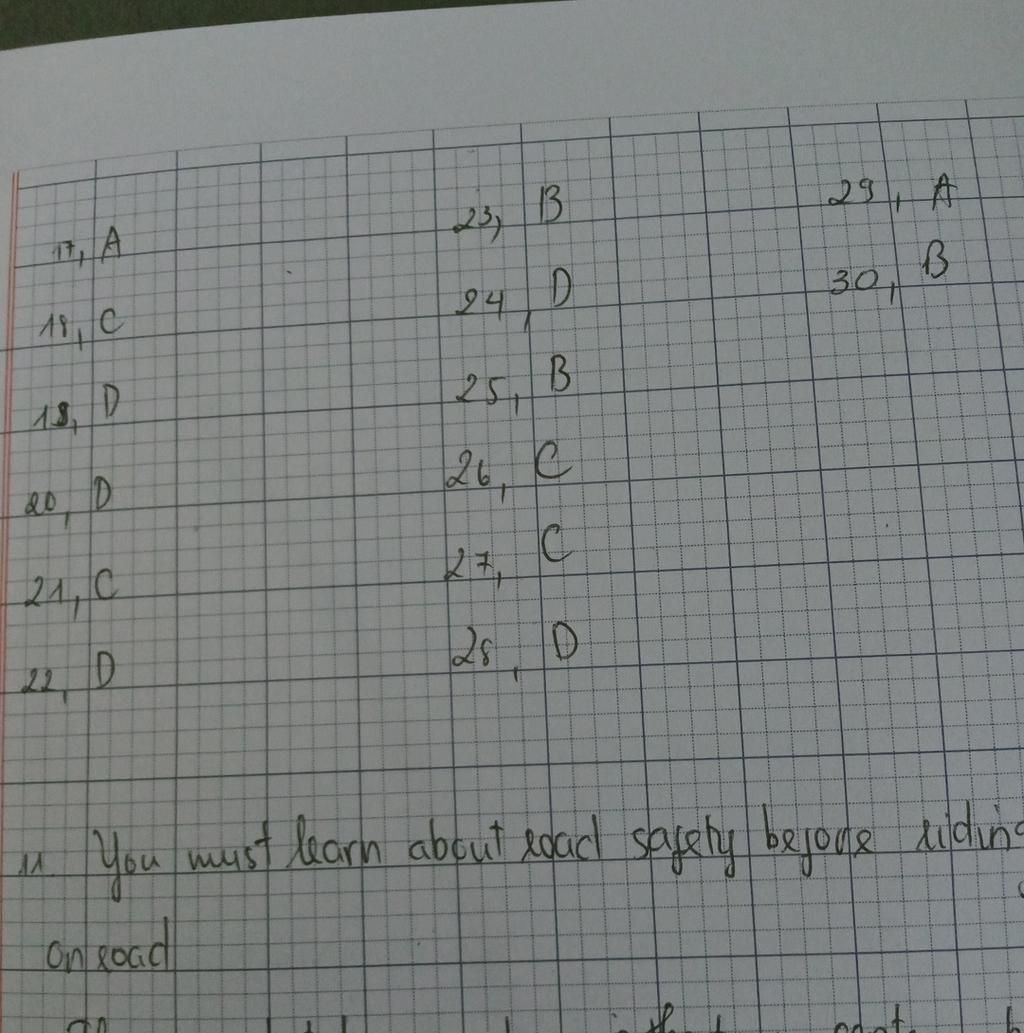 17, A
18, C
19, D
20, D
21, C
22, D
23, B
24, D
25, B
26, C
27, C
28, D
29, A
30, B
11 You must learn about road safety before riding
on road